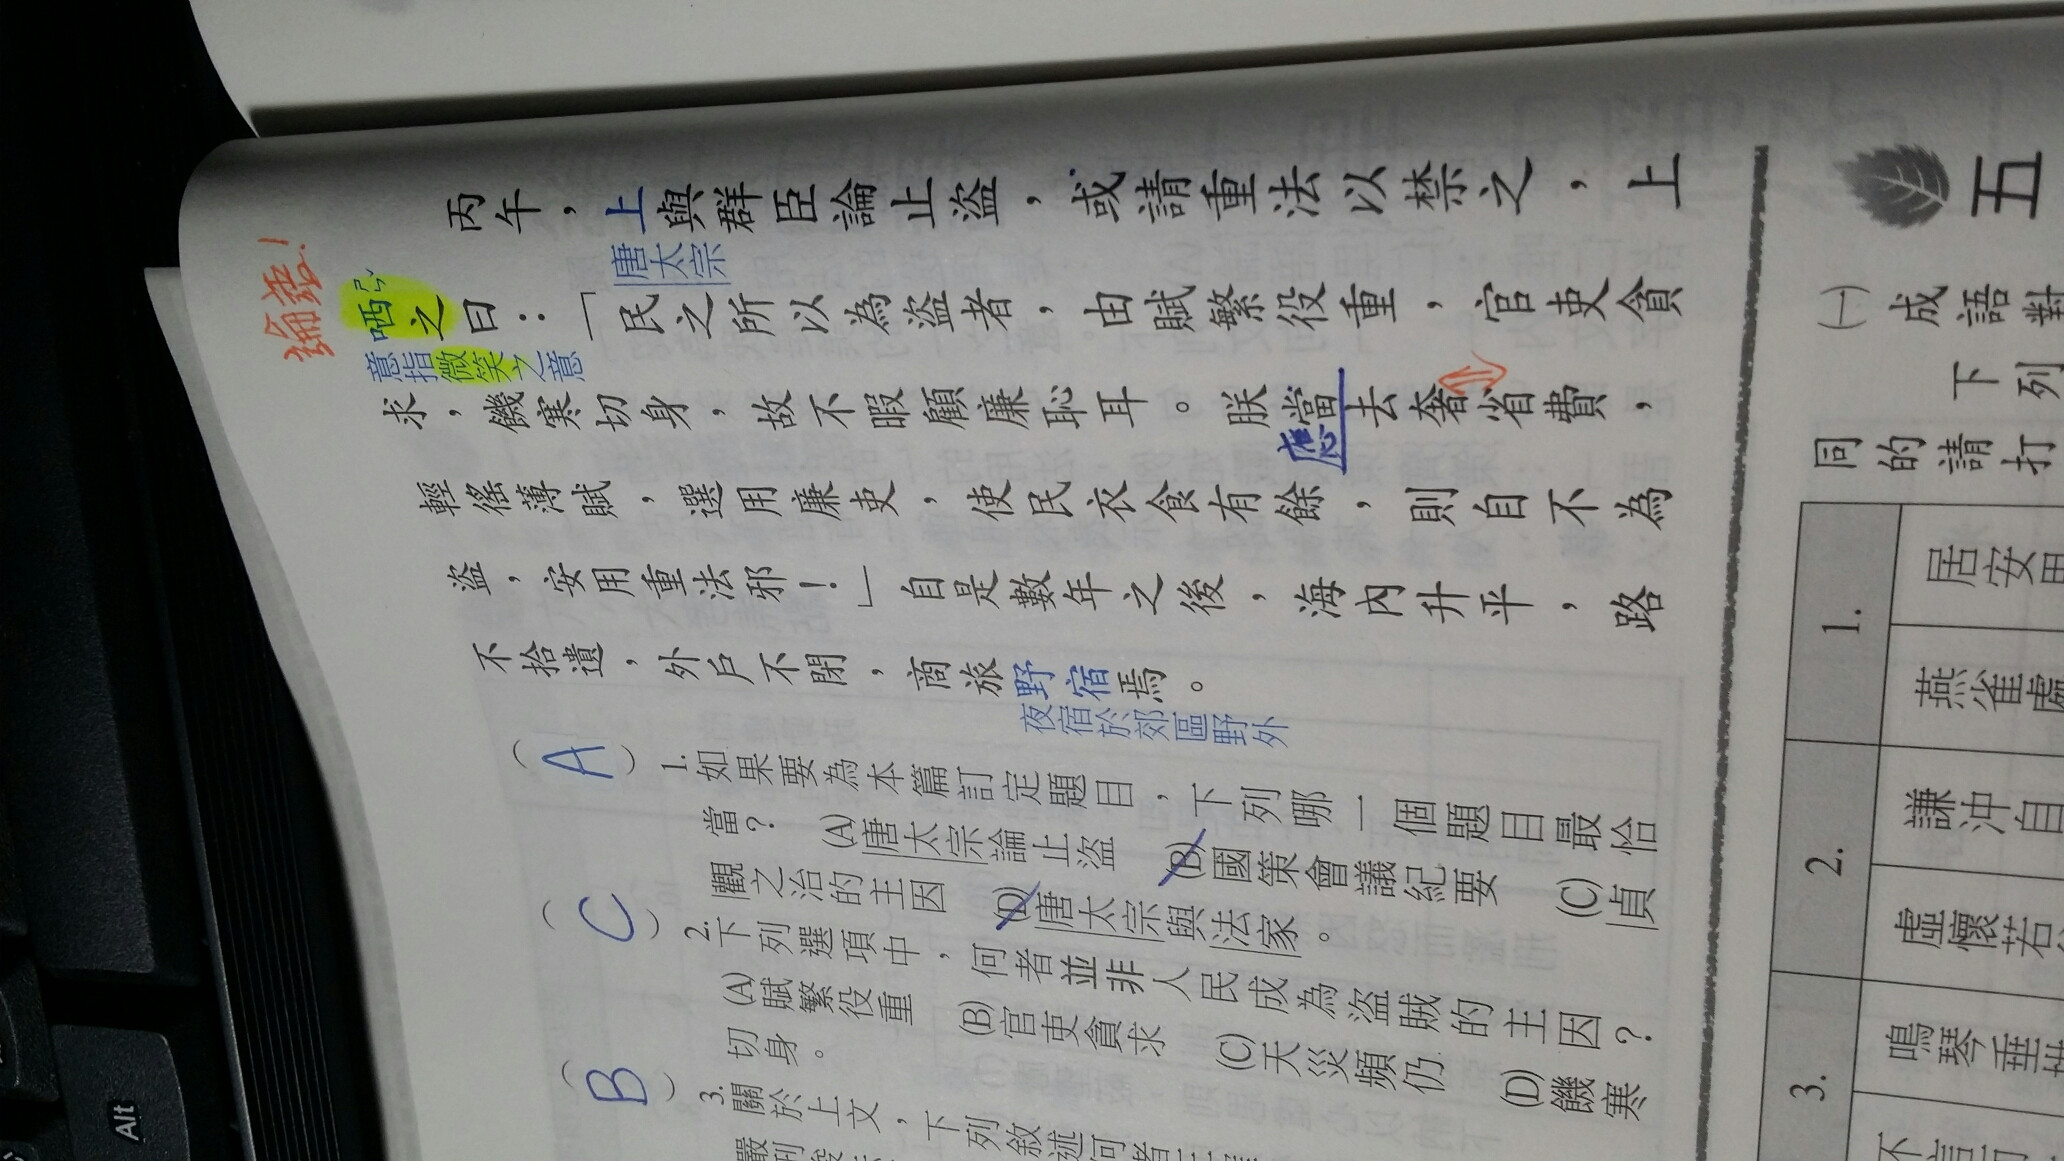 丙午，上與群臣論止盜，或請重法以禁之，上
唐太宗
論語！
哂之曰：「民之所以為盜者，由賦繁役重，官吏貪
ㄕㄣˇ
意指微笑之意
求，饑寒切身，故不暇顧廉恥耳。朕當去奢省費，
應
輕徭薄賦，選用廉吏，使民衣食有餘，則自不為
盜，安用重法邪！」自是數年之後，海內升平，路
不拾遺，外戶不閉，商旅野宿焉。
夜宿於郊區野外
（A）1.如果要為本篇訂定題目，下列哪一個題目最恰
當？ (A)唐太宗論止盜 (B)國策會議紀要 (C)貞
觀之治的主因 (D)唐太宗與法家。
（C）2.下列選項中，何者並非人民成為盜賊的主因？
(A)賦繁役重 (B)官吏貪求 (C)天災頻仍 (D)饑寒
切身。
（B）3.關於上文，下列敘述何者
嚴刑
五
㈠成語對
下列
同的請打
1.
居安思
燕雀處
2.
謙沖自
虛懷若
3.
鳴琴垂拱
不言
Alt